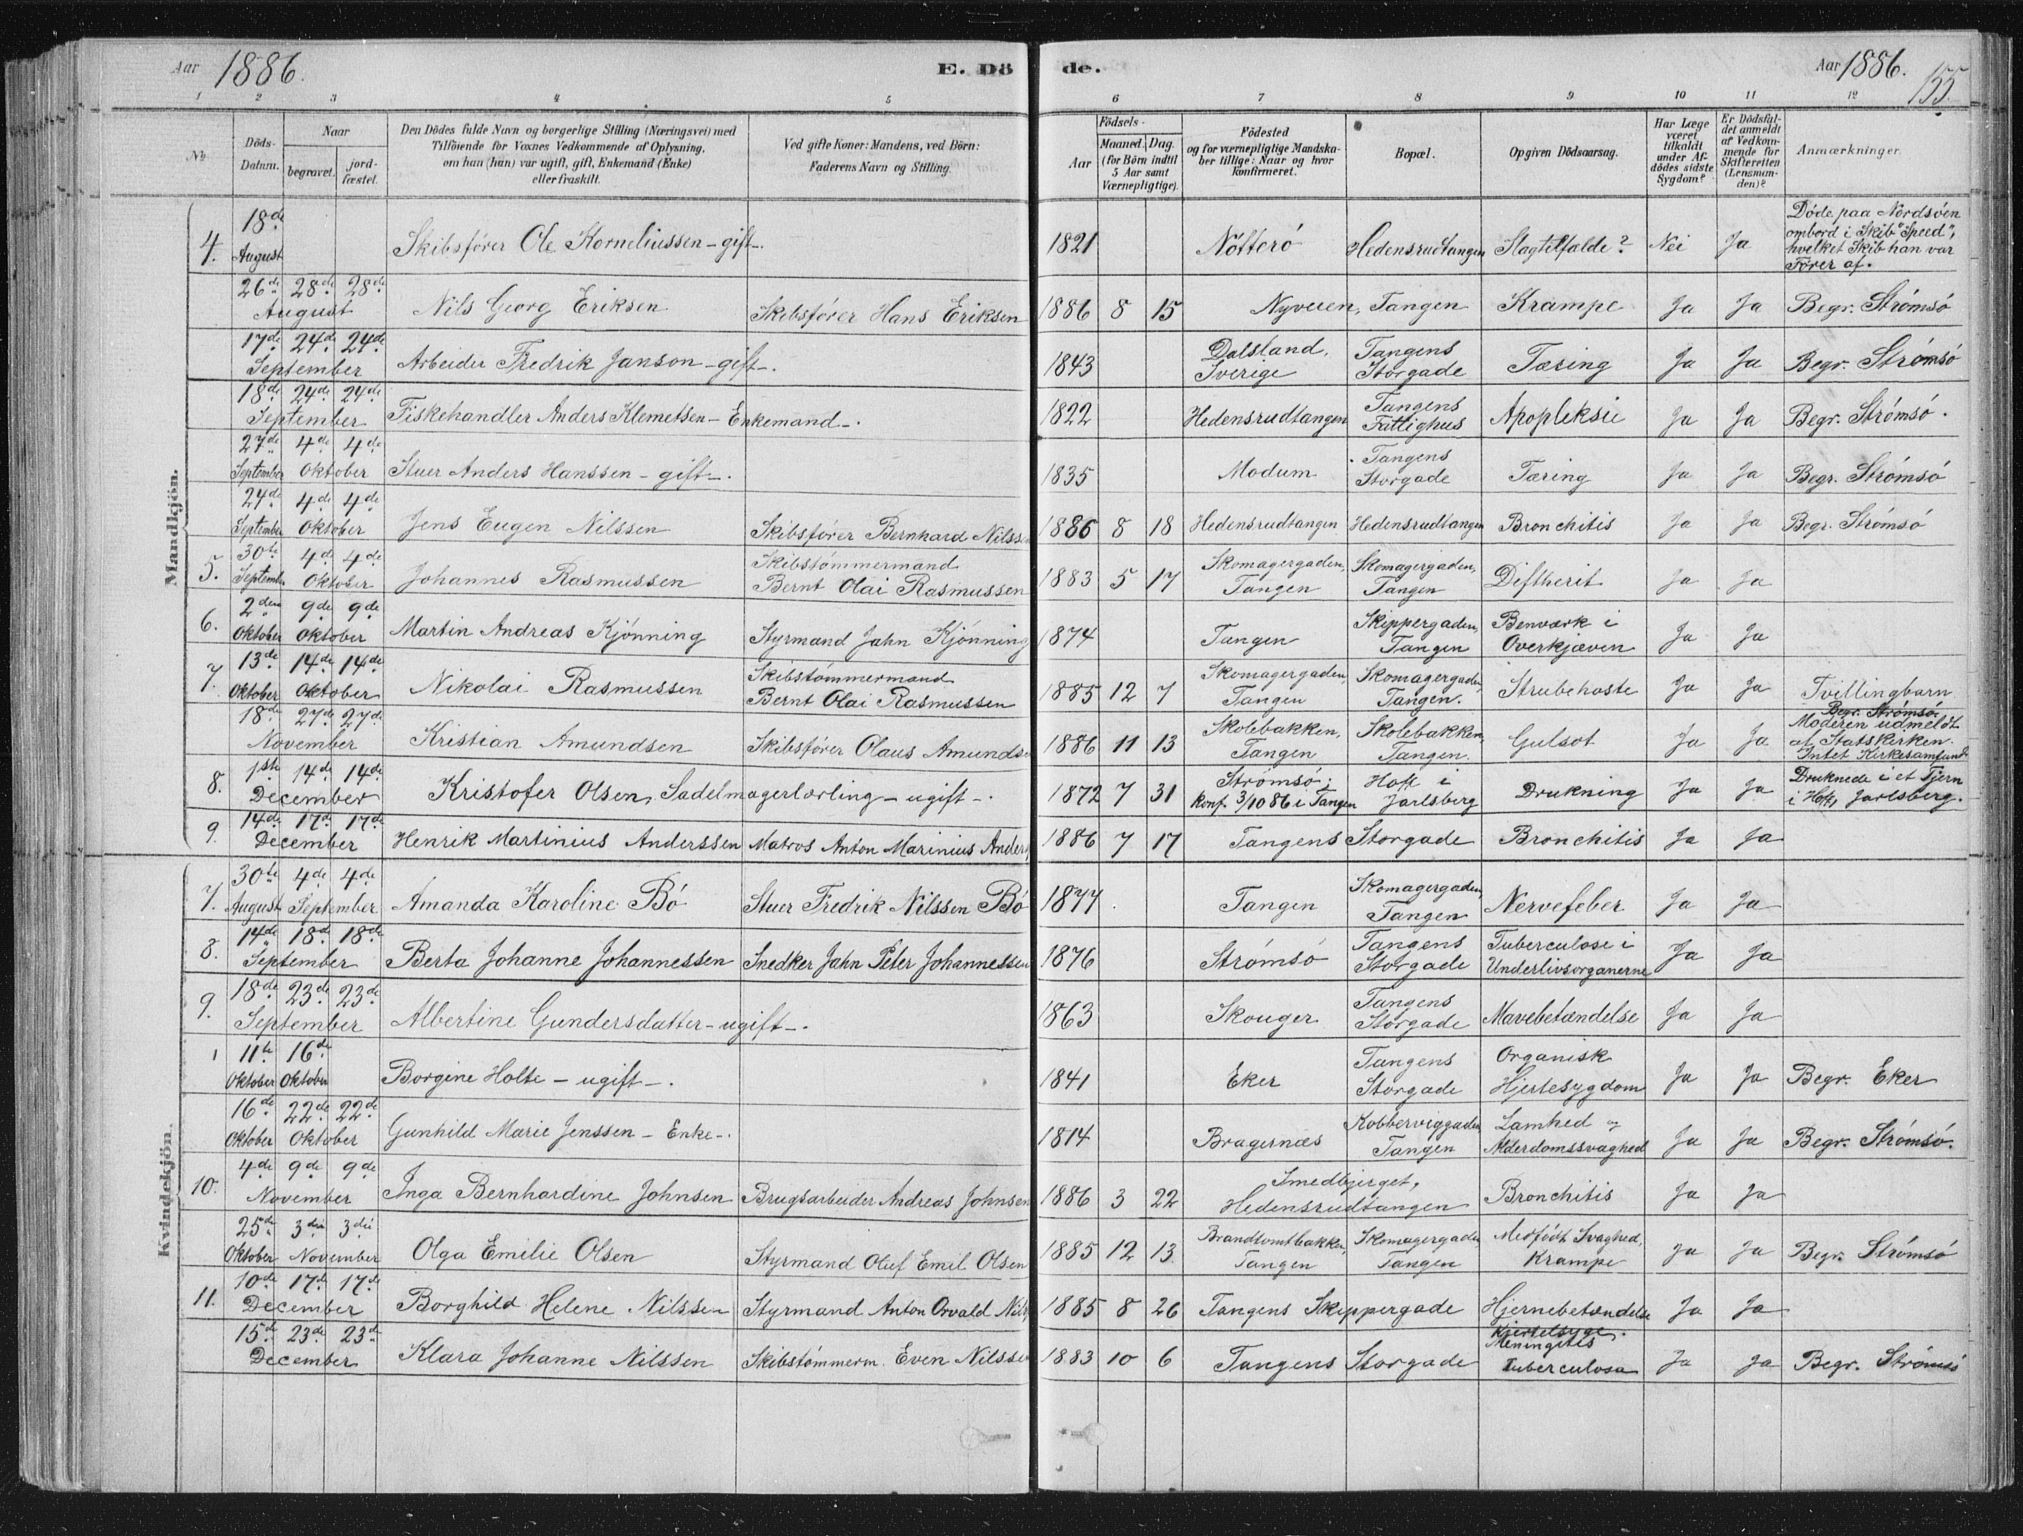 Aar 1886.
E. Dö
de.
Aar 1886.
155.
1 2 3 4 5 6 7 8 9 10 11 12
No
Döds-Datum.
Naar
begravet.
jord-fæstet.
Den Dödes fulde Navn og borgerlige Stilling (Næringsvei) med
Tilföiende for Voxnes Vedkommende af Oplysning,
om han (hun) var ugift, gift, Enkemand (Enke)
eller fraskilt.
Ved gifte Koner: Mandens, ved Börn:
Faderens Navn og Stilling.
Födsels-
Aar
Maaned. Dag.
(for Börn indtil
5 Aar samt
Værnepligtige).
Födested
og for værnepligtige Mandska-
ber tillige: Naar og hvor
konfirmeret.
Bopæl.
Opgiven Dödsaarsag.
Har Læge
været
tilkaldt
under Af-
dödes sidste
Sygdom?
Er Dödsfal-
det anmeldt
af Vedkom-
mende for
Skifteretten
(Lensman-
den)?
Anmærkninger.
Mandkjön.
4. 18de August Skibsfører Ole Korneliussen - gift -. 1821 Nötterö Hedensrudtangen Slagtilfælde? Nei Ja Döde paa Nordsöen
ombord i Skib "Speed",
hvilket Skib han var
Fører af.
26de 28de 28de August Nils Georg Eriksen Skibsfører Hans Eriksen 1886 8 15 Nyveien, Tangen Krampe Ja Ja Begr. Strömsö
17de 24de 24de September Arbeider Fredrik Janson - gift -. 1843 Dalsland, Sverige Tangens Storgade Tæring Ja Ja Begr. Strömsö
18de 24de 24de September Fiskehandler Anders Klemetsen - Enkemand -. 1822 Hedensrudtangen Tangens Fattighus Apopleksie Ja Ja Begr. Strömsö.
27de September 4de 4de Oktober Stuer Anders Hanssen - gift -. 1835 Modum Tangens Storgade Tæring Ja Ja Begr. Strömsö
24de September 4de 4de Oktober Jens Eugen Nilssen Skibsfører Bernhard Nilssen 1886 8 18 Hedensrudtangen Hedensrudtangen Bronchitis Ja Ja Begr. Strömsö
5. 30te September 4de 4de Oktober Johannes Rasmussen Skibstømmermand Bernt Olai Rasmussen 1883 5 17 Skomagergaden, Tangen Skomagergaden, Tangen Diftherit Ja Ja
6. 2den Oktober 9de 9de Oktober Martin Andreas Kjönning Styrmand Jahn Kjönning 1874 Tangen Skippergaden, Tangen Benværk i Overkjæven Ja Ja
7. 13de Oktober 14de 14de Oktober Nikolai Rasmussen Skibstømmermand Bernt Olai Rasmussen 1885 12 7 Skomagergaden, Tangen Skomagergaden, Tangen. Strubehoste Ja Ja Tvillingbarn
18de 27de 27de November Kristian Amundsen Skibsfører Olaus Amundsen 1886 11 13 Skolebakken, Tangen Skolebakken, Tangen. Gulsot Ja Ja Begr. Strömsö.
Moderen udmeldt
af Statskirken.
Intet Kirkesamfund.
8. 1ste 14de 14de December Kristofer Olsen, Sadelmagerlærling - ugift -. 1872 7 31 Strömsö; Konf. 3/10 86 i Tangen Hof i Jarlsberg Drukning Ja Ja Druknede i et Tjern
i Hof, Jarlsberg.
9. 14de 17de 17de December Henrik Martinius Anderssen Matros Anton Marinius Anders 1886 7 17 Tangens Storgade Bronchitis Ja Ja
Kvindekjön.
7. 30te August 4de 4de September Amanda Karoline Bö Stuer Fredrik Nilssen Bö 1877 Tangen Skomagergaden, Tangen Nervefeber Ja Ja
8. 14de 18de 18de September Berta Johanne Johannessen Snedker Jahn Peter Johannessen 1876 Strömsö Tangens Storgade Tuberculose i Underlivsorganerne Ja Ja
9. 18de 23de 23de September Albertine Gundersdatter - ugift -. 1863 Skouger Tangens Storgade Mavebetændelse Ja Ja
11te Oktober 16de Oktober Borgine Holte - ugift -. 1841 Eker Tangens Storgade Organisk Hjertesygdom Ja Ja Begr. Eker
16de Oktober 22de 22de Oktober Gunhild Marie Jenssen - Enke -. 1814 Bragernæs Kobberviggaden Tangen Lamhed og Alderdomssvaghed Ja Ja Begr. Strömsö.
10. 4de 9de 9de November Inga Bernhardine Johnsen Brugsarbeider Andreas Johnsen 1886 3 22 Smedbjerget, Hedensrudtangen Bronchitis Ja Ja
25de Oktober 3die 3die November Olga Emilie Olsen Styrmand Oluf Emil Olsen 1885 12 13 Brandtomtbakken, Tangen Skomagergaden Tangen Medfödt Svaghed, Krampe Ja Ja Begr. Strömsö
11. 10de 17de 17de December Borghild Helene Nilssen Styrmand Anton Osvald Nils 1885 8 26 Tangens Skippergade Hjernebetændelse Kjertelsyge. Ja Ja
15de 23de 23de December Klara Johanne Nilssen Skibstömmerm. Even Nilssen 1883 10 6 Tangens Storgade Meningitis Tuberculosa Ja Ja Begr. Strömsö